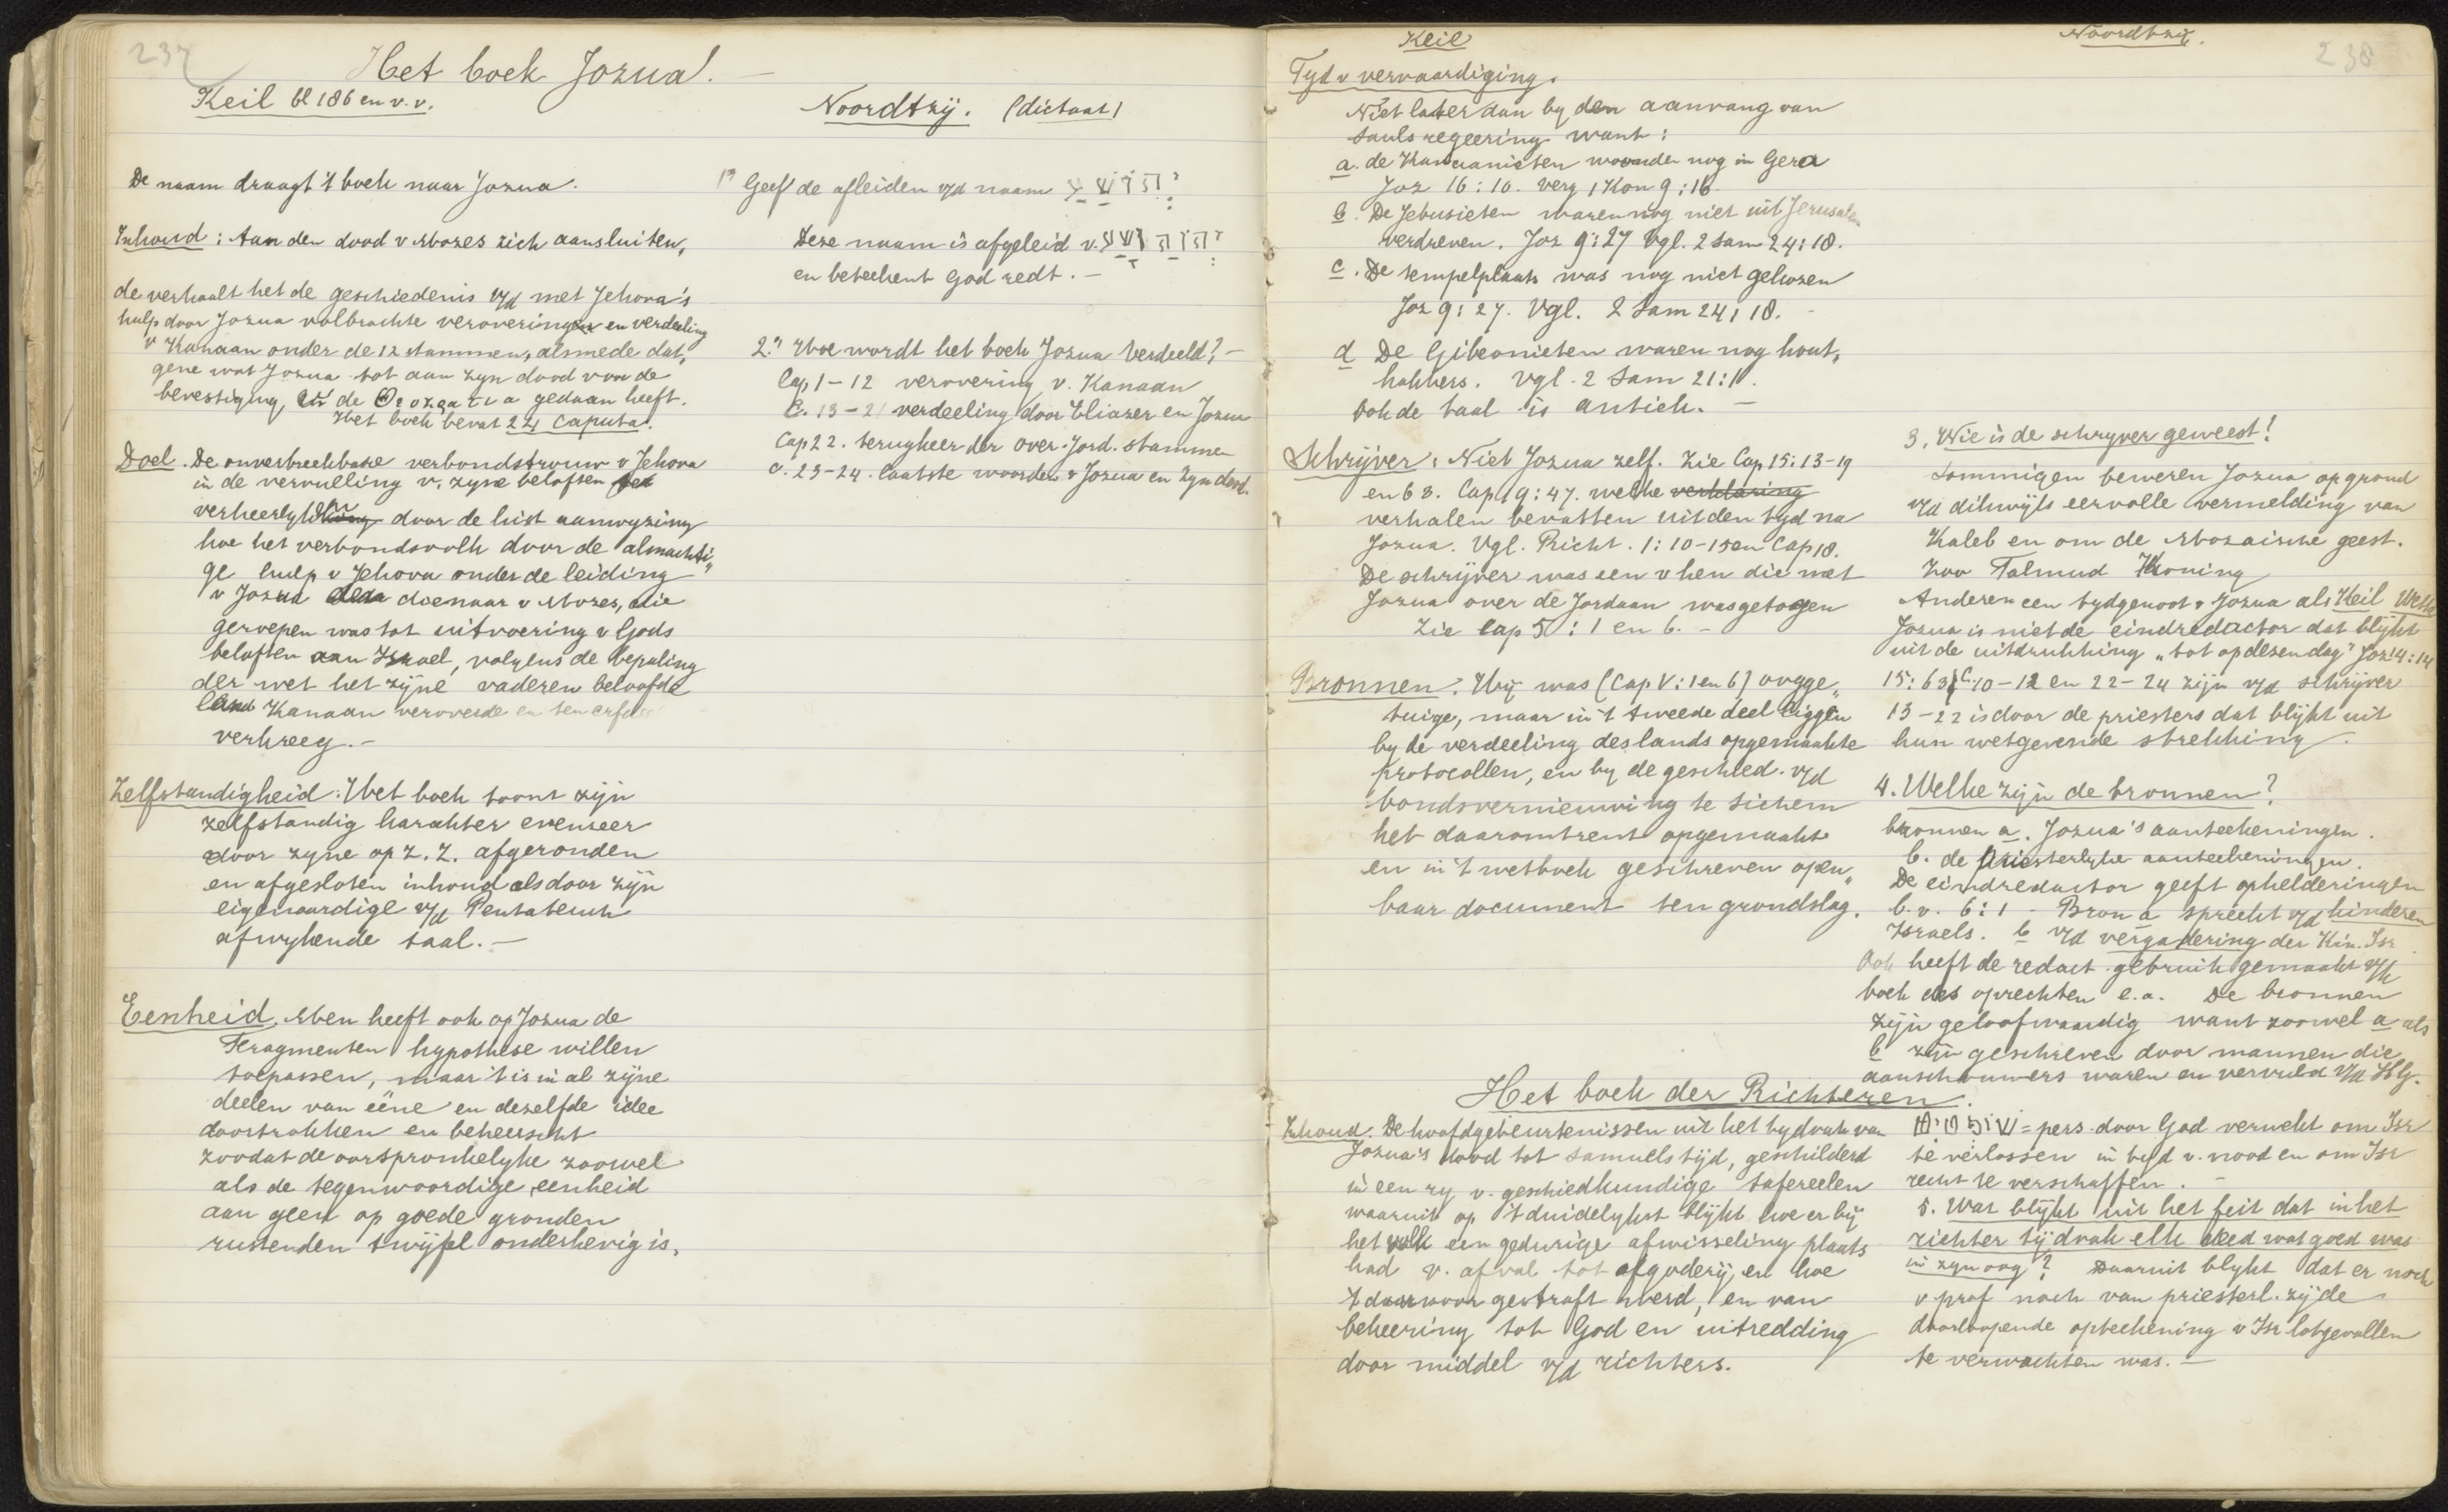 237
Het boek Jozua.
Keil bl 186 en v.v.
De naam draagt 't boek naar Jozua.
Inhoud: Aan den dood v Mozes zich aansluiten,
de verhaalt het de geschiedenis v/d met Jehova's
hulp door Jozua volbrachte veroveringen en verdeeling
v Kanaan onder de 12 stammen, alsmede dat,
gene wat Jozua tot aan zyn dood voor de
bevestiging, de Θεοκρατια gedaan heeft.
Het boek bevat 24 Caputa.
Doel. De onverbreekbare verbondstrouw v Jehova
in de vervulling v. zyne beloften
verheerlyken door de hist aanwyzing
hoe het verbondsvolk door de almachti„
ge hulp v Jehova onder de leiding
v Jozua dienaar v Mozes, die
geroepen was tot uitvoering v Gods
beloften aan Israel, volgens de bepaling
der wet het zijne vaderen beloofde
land Kanaan veroverde en ten erfdeel
verkreeg.-
Zelfstandigheid: Het boek toont zijn
zelfstandig karakter evenzeer
door zyne op z.z. afgeronden
en afgesloten inhoud als door zijn
eigenaardige v/d Pentateuch
afwykende taal.-
Eenheid. Men heeft ook op Jozua de
Fragmenten hypothese willen
toepassen, maar 't is in al zijne
deelen van eene en dezelfde idee
doortrokken en beheerscht
zoodat de oorspronkelyke zoowel
als de tegenwoordige eenheid
aan geen op goede gronden
rustenden twijfel onderhevig is.
Noordtzij. (dictaat)
1° Geef de afleiden v/d naam יהושע
Deze naam is afgeleid v. יהוה ישע
en beteekent God redt.-
2.° Hoe wordt het boek Jozua verdeeld?-
Cap 1-12 verovering v. Kanaan
C. 13-21 verdeeling door Eliazer en Jozua
Cap 22. terugkeer der over-Jord. stammen
c. 23-24. laatste woorden v Jozua en zyn dood.
Keil
Tyd v vervaardiging.
Niet later dan by den aanvang van
Sauls regeering want:
a. de Kanaanieten woonden nog in Gezer
Joz 16:10. Verg 1 Kon 9:16.
b. De Jebusieten waren nog niet uit Jerusalem
verdreven. Joz 9:27 Vgl. 2 Sam 24:18.
c. De tempelplaats was nog niet gekozen
Joz 9:27. Vgl. 2 Sam 24:18.
d De Gibeonieten waren nog hout„
hakkers. Vgl. 2 Sam 21:1.
Ook de taal is antiek.-
Schrijver: Niet Jozua zelf. Zie Cap 15:13-19
en 63. Cap 19:47. welke verklaring
verhalen bevatten uit den tyd na
Jozua. Vgl. Richt. 1:10-15 en Cap 18.
De schrijver was een v hen die met
Jozua over de Jordaan was getogen
Zie Cap 5:1 en 6.-
Bronnen. Hij was (Cap V:1 en 6) oogge„
tuige, maar in 't tweede deel liggen
by de verdeeling des lands opgemaakte
protocollen, en by de geschied. v/d
bondsvernieuwing te Sichem
het daaromtrent opgemaakt
en in 't wetboek geschreven open„
baar document ten grondslag.
Noordtzij.
238
3. Wie is de schryver geweest!
Sommigen beweren Jozua op grond
v/d dikwijls eervolle vermelding van
Kaleb en om de Mozaische geest.
Zoo Talmud Koning
Anderen een tydgenoot v Jozua als Keil
Jozua is niet de eindredactor dat blijkt
uit de uitdrukking „tot op dezen dag" Joz 14:14
15:63 C. 10-12 en 22-24 zijn v/d schrijver
13-22 is door de priesters dat blijkt uit
hun wetgevende strekking.
4. Welke zijn de bronnen?
bronnen a. Jozua's aanteekeningen.
b. de priesterlyke aanteekeningen.
De eindredactor geeft ophelderingen
b.v. 6:1 - Bron a spreekt v/d kinderen
Israels. b v/d vergadering der Kin. Isr
Ook heeft de redact gebruik gemaakt v/h
boek des oprechten e.a. De bronnen
zijn geloofwaardig want zoowel a als
b zijn geschreven door mannen die
aanschouwers waren en vervuld v/d H.G.
Het boek der Richteren.
Inhoud. De hoofdgebeurtenissen uit het tydvak van
Jozua's dood tot Samuels tijd, geschilderd
in een ry v. geschiedkundige tafereelen
waaruit op 't duidelykst blijkt hoe er bij
het volk een gedurige afwisseling plaats
had v. afval tot afgoderij, en hoe
't daarvoor gestraft werd, en van
bekeering tot God en uitredding
door middel v/d richters.
שפטים = pers. door God verwekt om Isr
te verlossen in tijd v. nood en om Isr
recht te verschaffen.-
5. Wat blijkt uit het feit dat in het
richter tijdvak elk deed wat goed was
in zyn oog? Daaruit blykt dat er noch
v prof noch van priesterl. zijde
doorloopende opteekening v Isr lotgevallen
te verwachten was.-